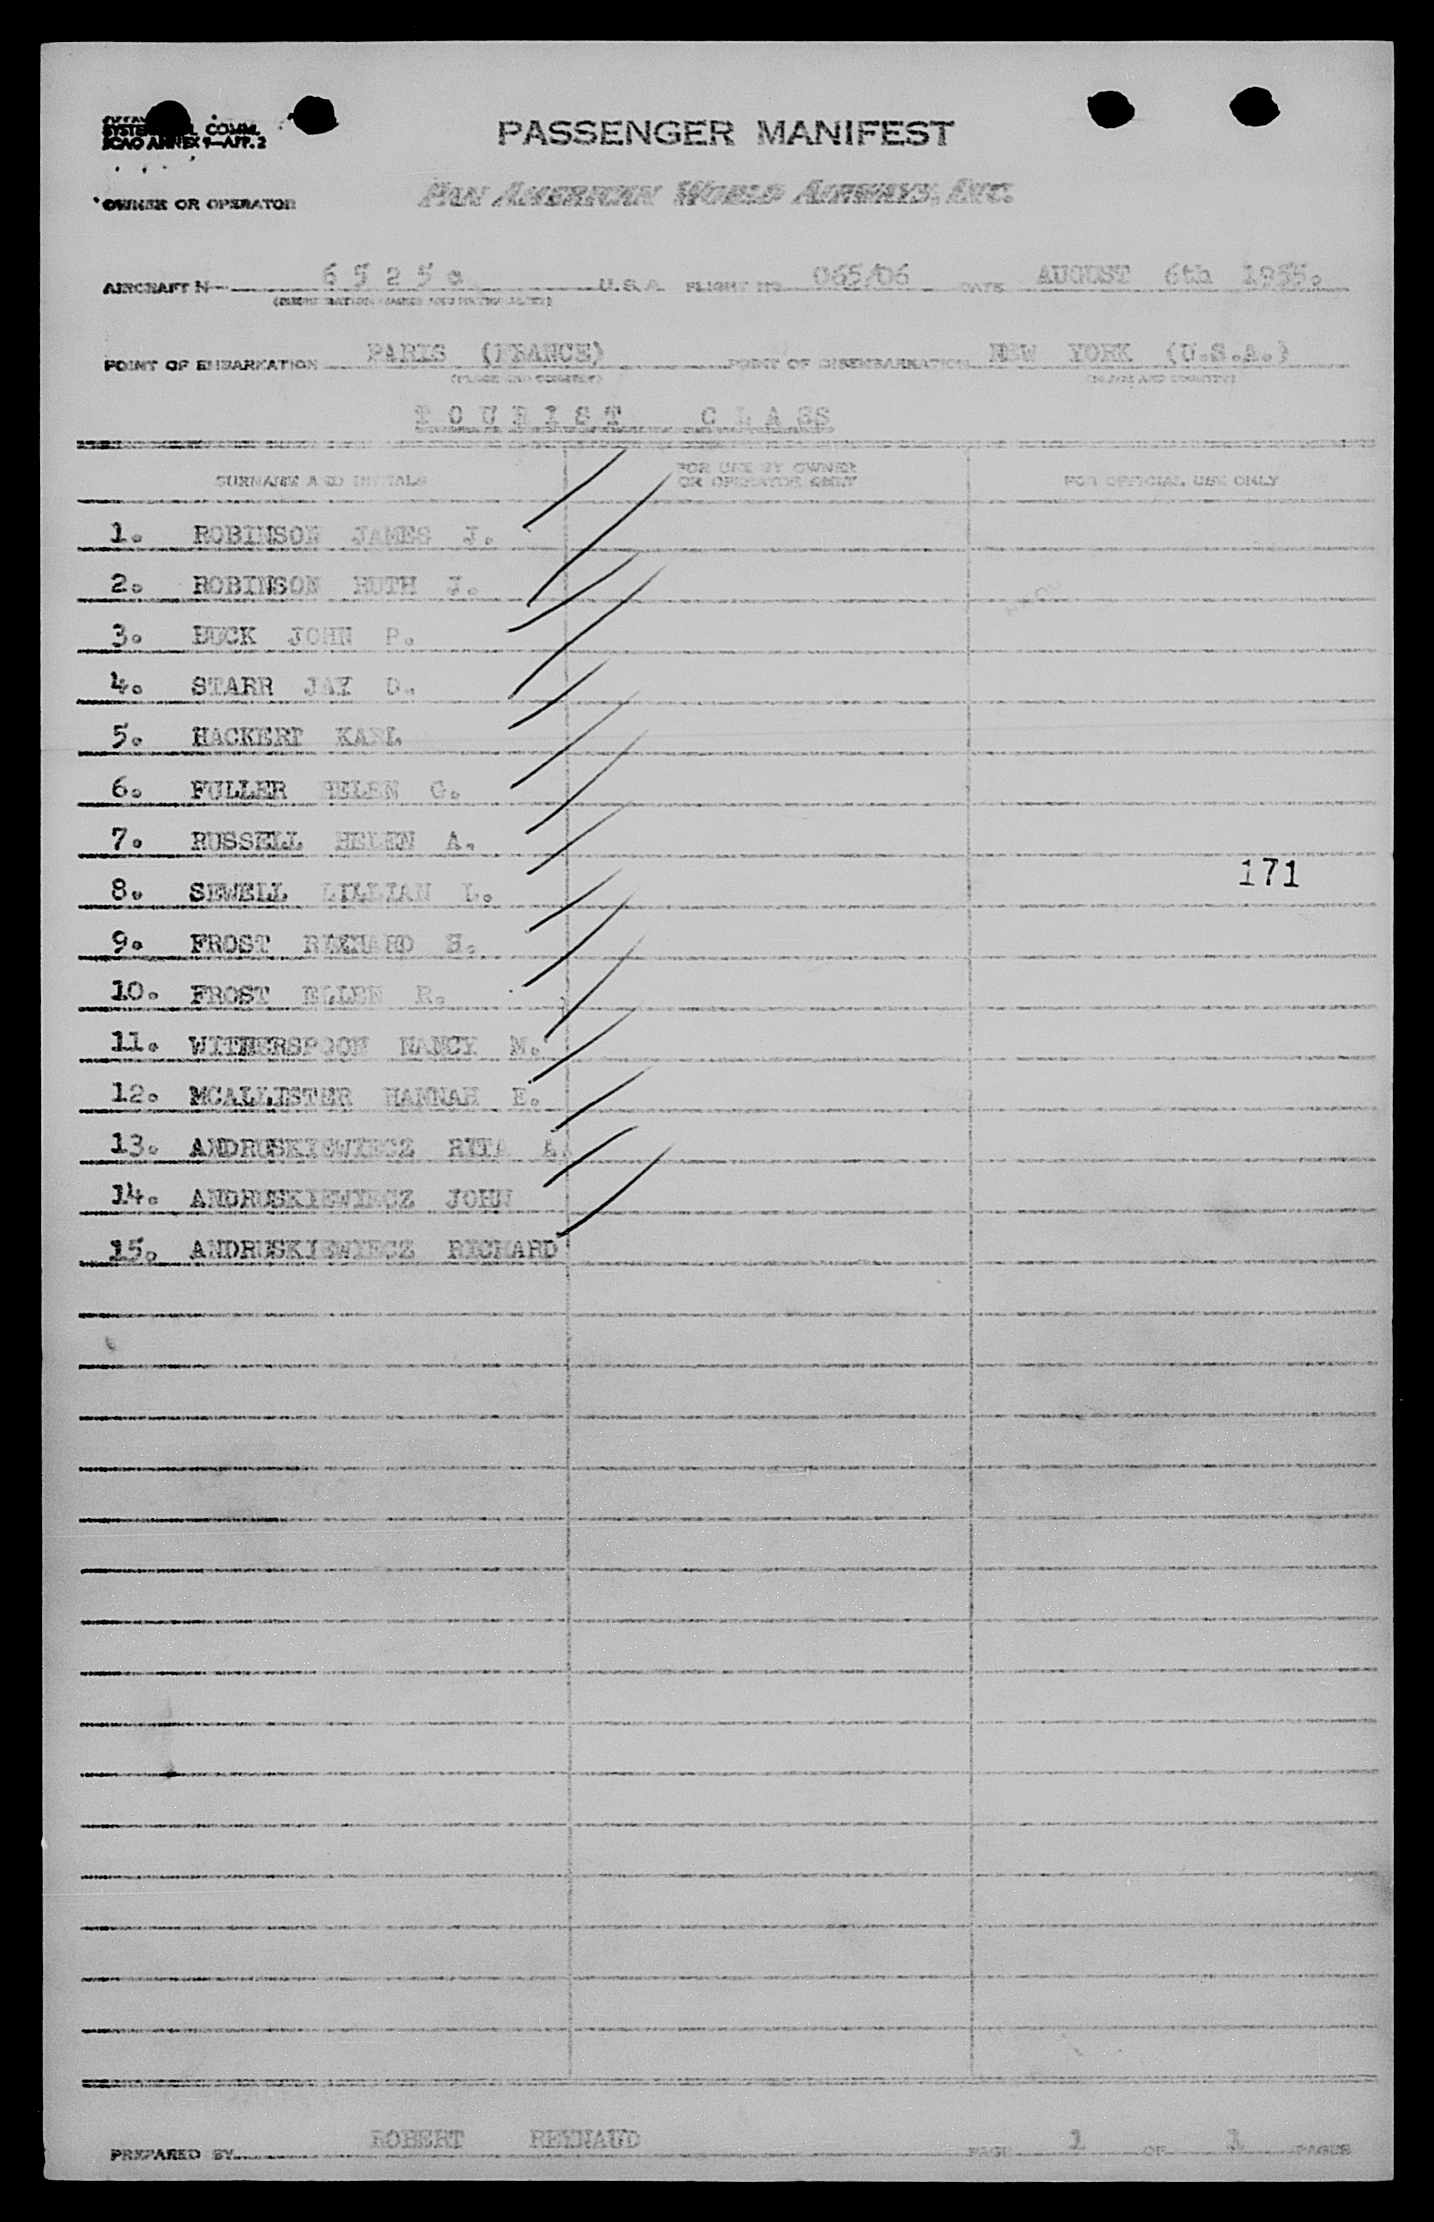 SYSTE L COMM.
ICAO ANNEX 9—APP. 2
PASSENGER MANIFEST
OWNER OR OPERATOR PAN AMERICAN WORLD AIRWAYS, INC.
AIRCRAFT N 6 5 2 5 c U.S.A. FLIGHT NO 065/06 DATE AUGUST 6th 1955.
POINT OF EMBARKATION PARIS (FRANCE) POINT OF DISEMBARKATION NEW YORK (U.S.A.)
(PLACE AND COUNTRY) (PLACE AND COUNTRY)
T O U R I S T C L A SS
SURNAME AND INITIALS FOR USE BY OWNER OR OPERATOR ONLY FOR OFFICIAL USE ONLY
1. ROBINSON JAMES J.
2. ROBINSON RUTH J.
3. BUCK JOHN P.
4. STARR JAY D.
5. HACKERT KARL
6. FULLER HELEN G.
7. RUSSELL HELEN A.
171
8. SEWELL LILLIAN L.
9. FROST RICHARD H.
10. FROST ELLEN R.
11. WITHERSPOON NANCY M.
12. MCALLISTER HANNAH E.
13. ANDRUSKIEWIECZ RITA A.
14. ANDRUSKIEWIECZ JOHN
15. ANDRUSKIEWIECZ RICHARD
PREPARED BY ROBERT REYNAUD PAGE 1 OF 1 PAGES